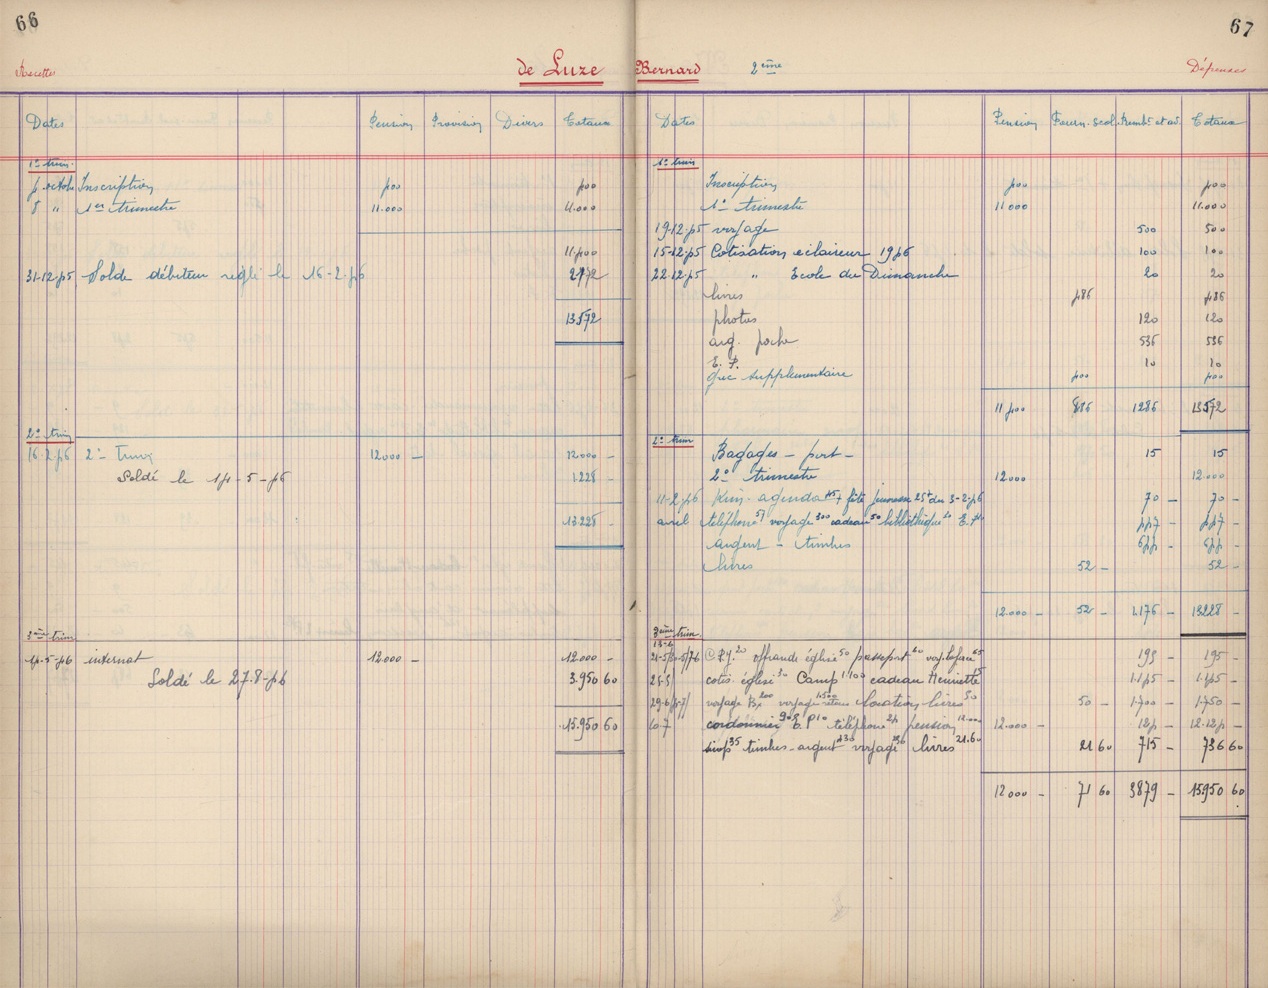 66
67
Recettes
de Luze Bernard 2ème
Dépenses
Dates Pension Provision Divers Totaux
1er trim.
4 octob Inscription 400 400
8 " 1er trimestre 11.000 11.000
11400
31-12-45 Solde débiteur réglé le 16-2-46 2172
13572
2e trim
16-2-46 2e Trim 12000 - 12000 -
Soldé le 14-5-46 1.228 -
13.228 -
3ème trim
14-5-46 internat 12.000 - 12.000 -
Soldé le 27-8-46 3.950 60
15.950 60
Dates Pension Fourn. scol. Remb. et av. Totaux
1er trim
Inscription 400 400
1er trimestre 11000 11.000
19-12-45 voyage 500 500
15-12-45 Cotisation éclaireur 1946 100 100
22-12-45 " Ecole du Dimanche 20 20
livres 486 486
photos 120 120
arg. poche 536 536
E. P. 10 10
grec supplémentaire 400 400
11400 886 1286 13572
2e trim
Bagages - port - 15 15
2e trimestre 12000 12.000
11-2-46 agenda 45 + fête jeunesse 25 du 3-2-46 70 - 70 -
avril téléphone voyage 300 cadeau 50 bibliothèque E.P. 447 - 447 -
argent - timbres 644 - 644 -
livres 52 - 52 -
12.000 - 52 - 1.176 - 13228 -
3ème trim.
20 offrande église 50 passeport 195 - 195 -
cotis. église Camp 1100 cadeau Henriette 15 1.145 - 1.145 -
voyage Bx 200 voyage retour 1500 location livres 50 50 - 1.700 - 1.750 -
10-7 cordonnier 90 E.P 10 téléphone 24 pension 12.000 12.000 - 124 - 12.124 -
sirop 35 timbres-argent voyage livres 21.60 21 60 715 - 736 60
12000 - 71 60 3879 - 15950 60